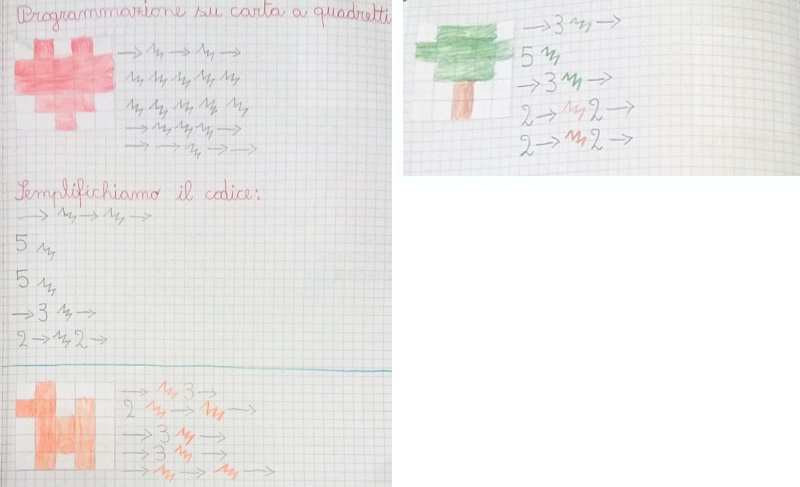 Programmazione su carta a quadretti
→ → →
→ →
→ → → →
Semplifichiamo il codice:
→ → →
5
5
→ 3 →
2 → 2 →
→ 3 →
2 → →
→ 3 →
→ 3 →
→ → →
→ 3 →
5
→ 3 →
2 → 2 →
2 → 2 →